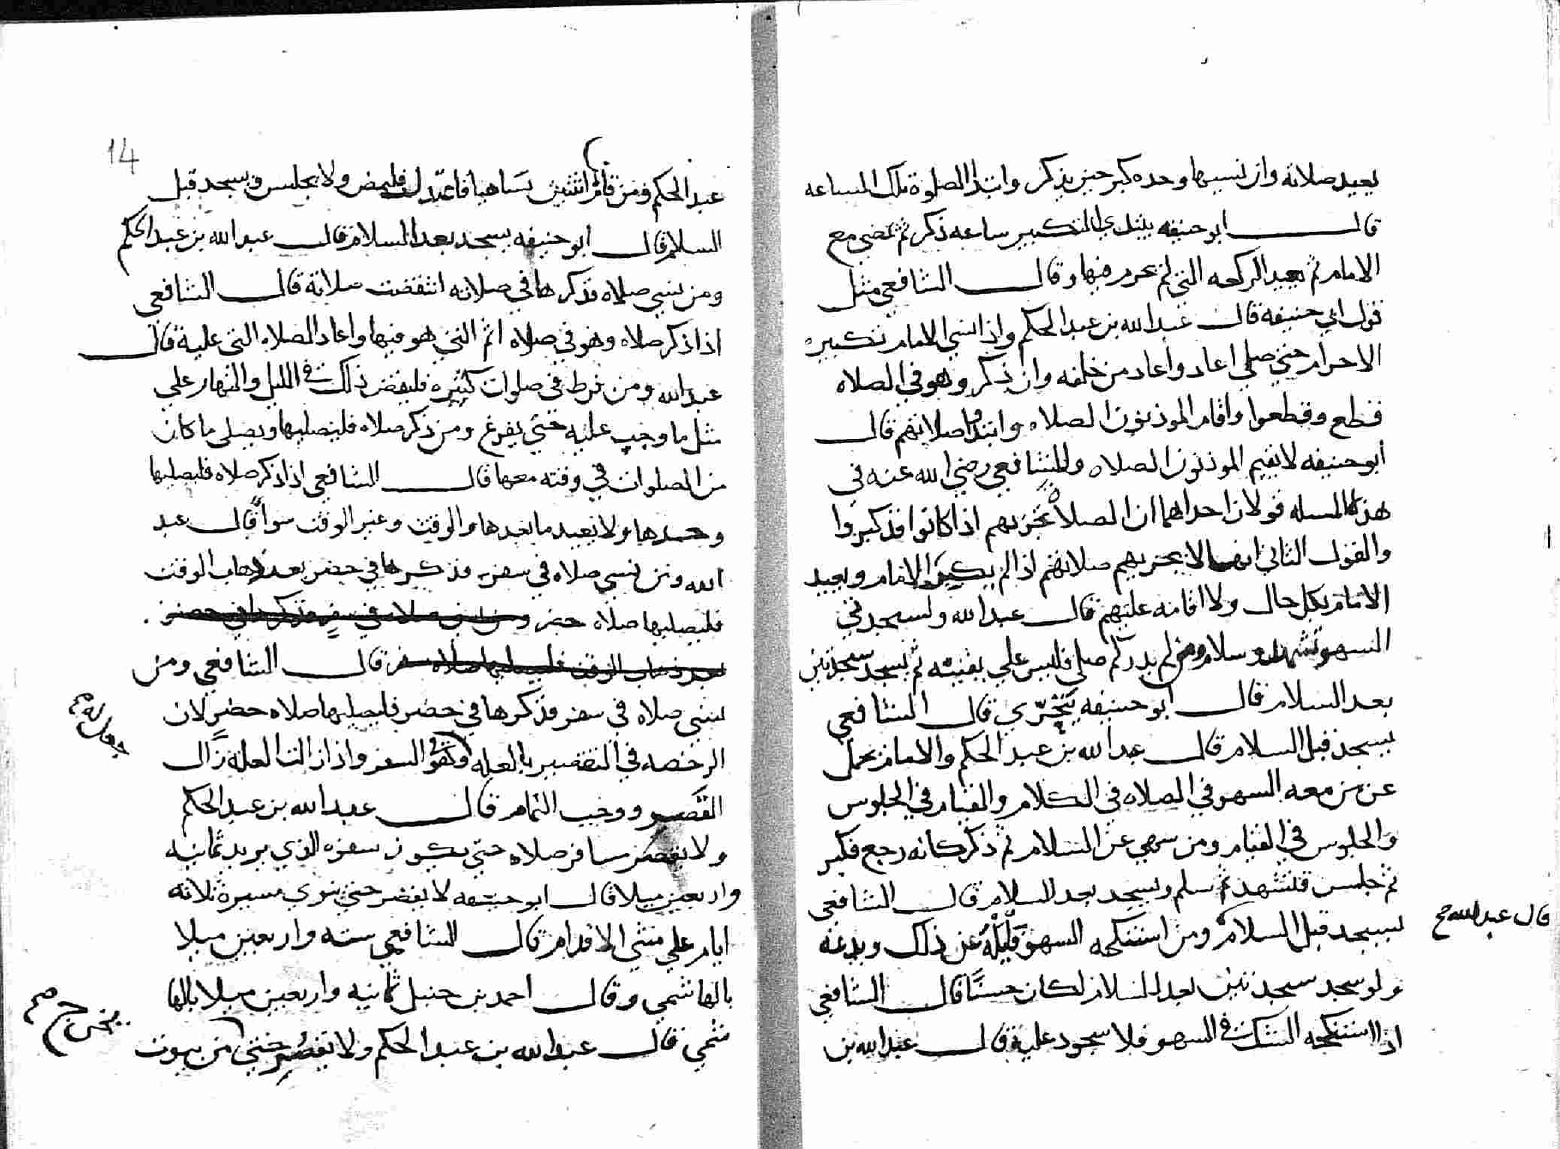 يعيد صلاته وان نسيها وحده كبر حين يذكر وابتدا الصلوة تلك الساعه
قال ابو حنيفه يبتدي التكبير ساعه ذكر ثم يمضي مع
الامام ثم يعيد الركعه التي لم يحرم فيها وقال الشافعي مثل
قول ابي حنيفه قال عبد الله بن عبد الحكم واذا نسي الامام تكبيره
الاحرام حتي صلي اعاد وأعاد من خلفه وان ذكر وهو في الصلاه
قطع وقطعوا واقام الموذنون الصلاه وابتدوا صلاتهم قال
أبو حنيفه لا يقيم الموذنون الصلاه وللشافعي رضي الله عنه في
هذه المسله قولان احداهما ان الصلاة تجزيهم اذا كانوا قد كبروا
والقول الثاني انها لا تجزيهم صلاتهم اذا لم يكبر الامام ويعيد
الامام بكل حال ولا اقامه عليهم قال عبد الله ولسجدتي
السهو تشهد وسلام ومن لم يدر كم صلي فليبن علي يقينه ثم يسجد سجدتين
بعد السلام قال ابو حنيفه يتحرّي قال الشافعي
يسجد قبل السلام قال عبد الله بن عبد الحكم والامام يحمل
عن من معه السهو في الصلاه في الكلام والقيام في الجلوس
والجلوس في القيام ومن سهي عن السلام ثم ذكر مكانه رجع فكبر
ثم جلس فتشهد ثم سلم ويسجد بعد السلام قال الشافعي
يسجد قبل السلام ومن استنكحه السهو فليله عن ذلك ويدعه
ولو سجد سجدتين بعد السلام لكان حسنًا قال الشافعي
اذا استنكحه الشك في السهو فلا سجود عليه قال عبد الله بن
قال عبد الله
14
عبد الحكم ومن قام من اثنتين ساهيا فاعتدل فليمض ولا يجلس ويسجد قبل
السلام قال أبو حنيفه يسجد بعد السلام قال عبد الله بن عبد الحكم
ومن نسي صلاه فذكرها في صلاته انتقضت صلاتة قال الشافعي
اذا ذكر صلاه وهو في صلاه اتم التي هو فيها واعاد الصلاه التي عليه قال
عبد الله ومن فرط في صلوات كثيره فليقض ذلك في الليل والنهار علي
مثل ما وجب عليه حتي يفرغ ومن ذكر صلاه فليصليها ويصلي ما كان
من الصلوات في وقته معها قال الشافعي اذا ذكر صلاه فليصليها
وحدها ولا يعيد ما بعدها والوقت وغير الوقت سوآ قال عبد
الله ومن نسي صلاه في سفر فذكرها في حضر بعد ذهاب الوقت
فليصليها صلاه حضر ومن نسي صلاه في سفر فذكرها في حضر
بعد ذهاب الوقت فليصليها صلاه سفر قال الشافعي ومن
نسي صلاه في سفر فذكرها في حضر فليصليها صلاه حضر لان
الرخصه في التقصير بالعله وهو السفر واذا زالت العله زال
القصر ووجب التمام قال عبد الله بن عبد الحكم
ولا يقصر مسافر صلاه حتي يكون سفره الذي يريد ثمانيه
واربعين ميلا قال ابو حنيفه لا يقصر حتي ينوي مسيرة ثلاثه
ايام علي مشي الاقدام قال الشافعي سته واربعين ميلا
بالهاشمي وقال احمد بن حنبل ثمانيه واربعين ميلا بالها
شمي قال عبد الله بن عبد الحكم ولا يقصر حتي من بيوت
جعل له
يخرج صح